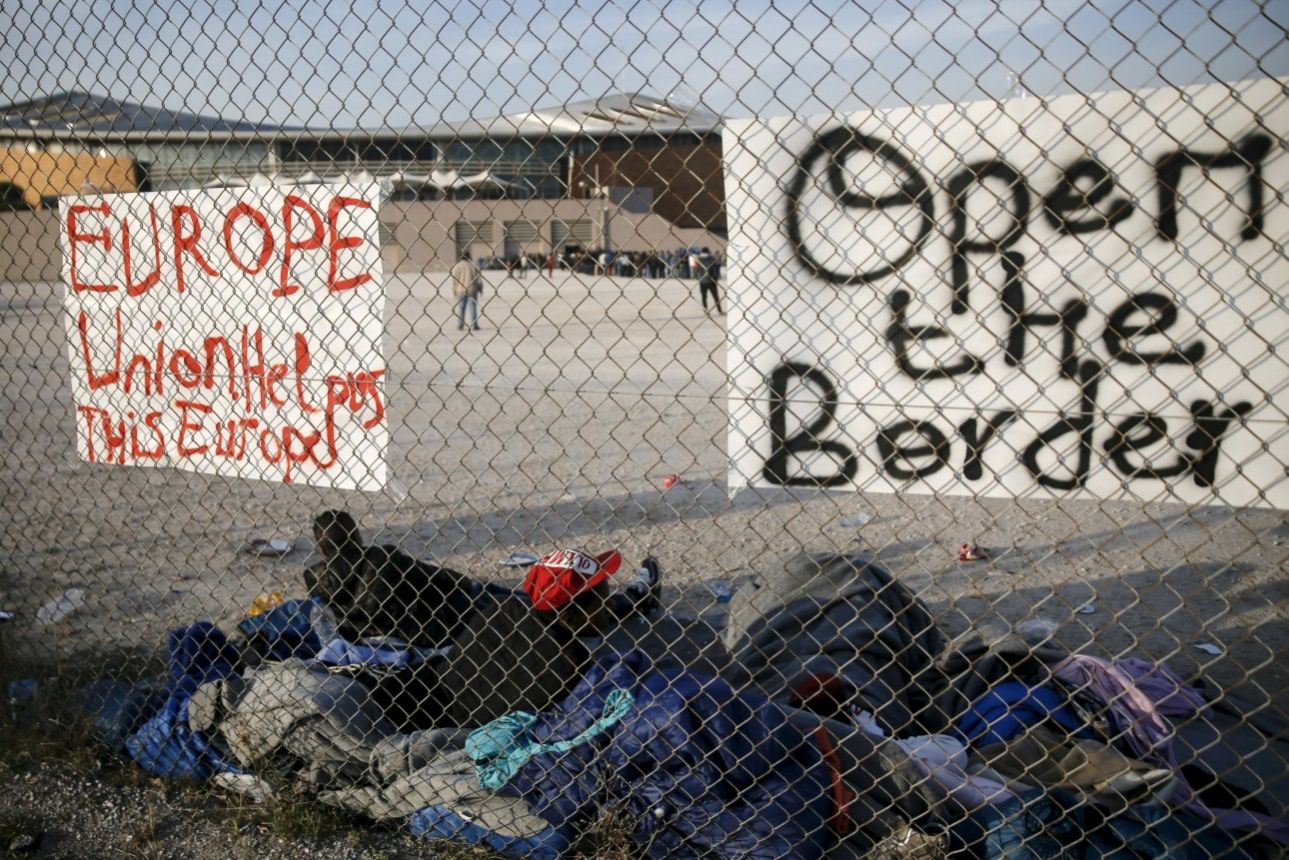 EUROPE
Union.HeLp us
THis Europe
Open
the
Border